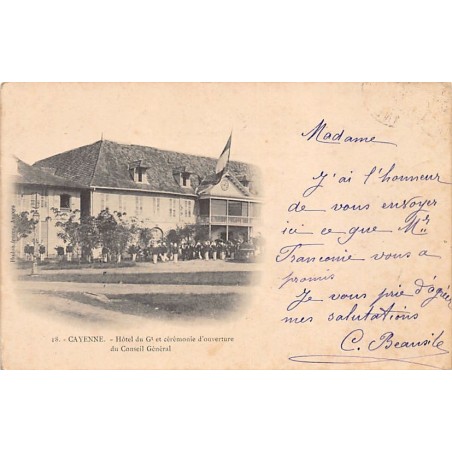 Madame
J'ai l'honneur
de vous envoyer
ici ce que Mr
Franconie vous a
promis
Je vous prie d'agréer
mes salutations
C.
18. - CAYENNE. - Hôtel du Gt et cérémonie d'ouverture
du Conseil Général